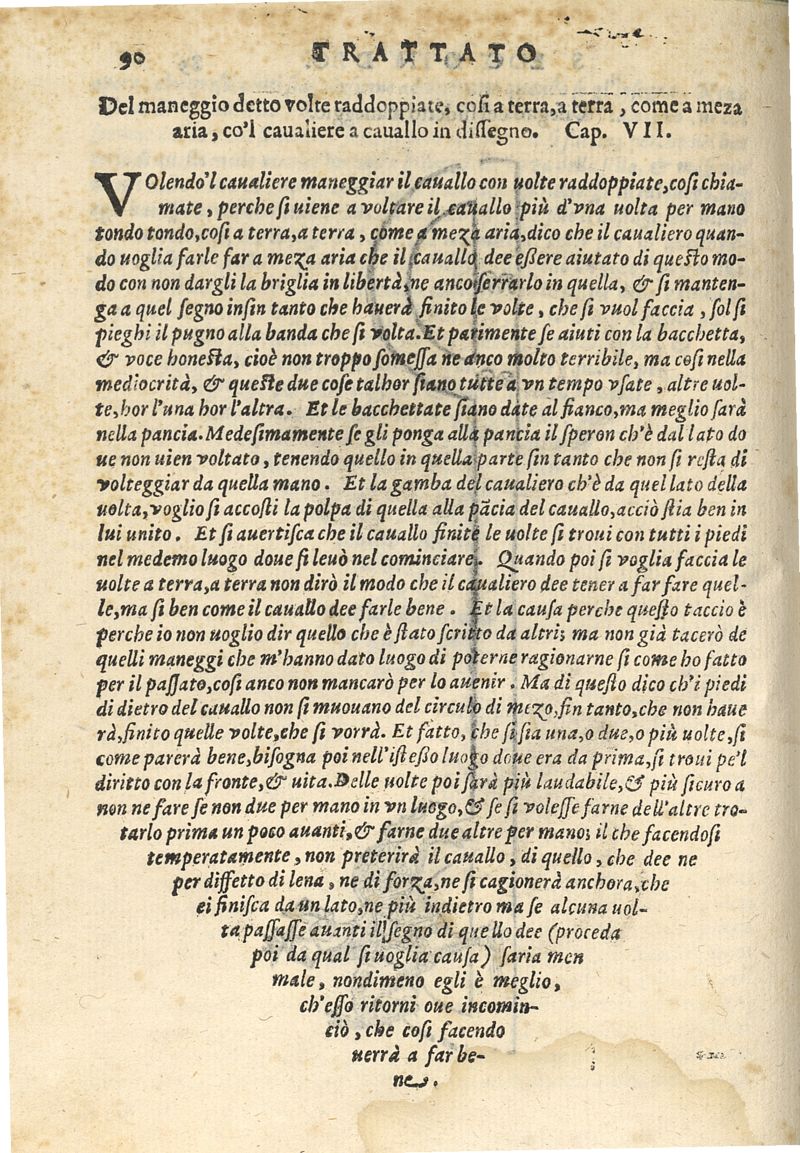 90 TRATTATO
Del maneggio detto volte raddoppiate, così a terra, a terra, come a meza
aria, co'l caualiere a cauallo in dissegno. Cap. VII.
VOlendo'l caualiere maneggiar il cauallo con uolte raddoppiate, così chia-
mate, perche si uiene a voltare il cauallo più d'vna uolta per mano
tondo tondo, così a terra, a terra, come a meza aria, dico che il caualiero quan-
do uoglia farle far a meza aria che il cauallo dee essere aiutato di questo mo-
do con non dargli la briglia in libertà, ne anco serrarlo in quella, & si manten-
ga a quel segno insin tanto che hauerà finito le volte, che si vuol faccia, sol si
pieghi il pugno alla banda che si volta. Et parimente se aiuti con la bacchetta,
& voce honesta, cioè non troppo somessa ne anco molto terribile, ma così nella
mediocrità, & queste due cose talhor siano tutte a vn tempo vsate, altre uol-
te, hor l'una hor l'altra. Et le bacchettate siano date al fianco, ma meglio sarà
nella pancia. Medesimamente se gli ponga alla pancia il speron ch'è dal lato do
ue non uien voltato, tenendo quello in quella parte sin tanto che non si resta di
volteggiar da quella mano. Et la gamba del caualiero ch'è da quel lato della
uolta, voglio si accosti la polpa di quella alla pãcia del cauallo, acciò stia ben in
lui unito. Et si auertisca che il cauallo finite le uolte si troui con tutti i piedi
nel medemo luogo doue si leuò nel cominciare. Quando poi si voglia faccia le
uolte a terra, a terra non dirò il modo che il caualiero dee tener a far fare quel-
le, ma si ben come il cauallo dee farle bene. Et la causa perche questo taccio è
perche io non uoglio dir quello che è stato scritto da altri; ma non già tacerò de
quelli maneggi che m'hanno dato luogo di poterne ragionarne si come ho fatto
per il passato, così anco non mancarò per lo auenir. Ma di questo dico ch'i piedi
di dietro del cauallo non si muouano del circulo di mezo, fin tanto, che non haue
rà, finito quelle volte, che si vorrà. Et fatto, che si sia una, o due, o più uolte, si
come parerà bene, bisogna poi nell'istesso luogo doue era da prima, si troui pe'l
diritto con la fronte, & uita. Delle uolte poi sarà più laudabile, & più sicuro a
non ne fare se non due per mano in vn luogo, & se si volesse farne dell'altre tro-
tarlo prima un poco auanti, & farne due altre per mano; il che facendosi
temperatamente, non preterirà il cauallo, di quello, che dee ne
per diffetto di lena, ne di forza, ne si cagionerà anchora, che
ei finisca da un lato, ne più indietro ma se alcuna uol-
ta passasse auanti il segno di quello dee (proceda
poi da qual si uoglia causa) saria men
male, nondimeno egli è meglio,
ch'esso ritorni oue incomin-
ciò, che così facendo
uerrà a far be-
ne.